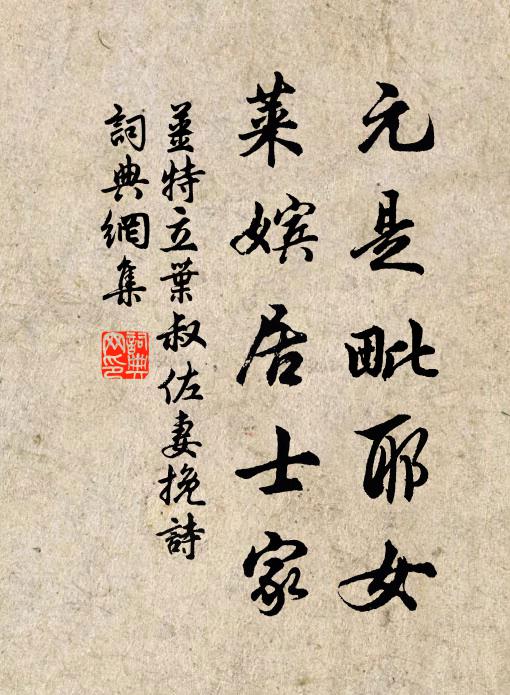 元是毗耶女
萊嬪居士家
姜特立葉叔佐妻挽詩
詞典網集
詞典
网印